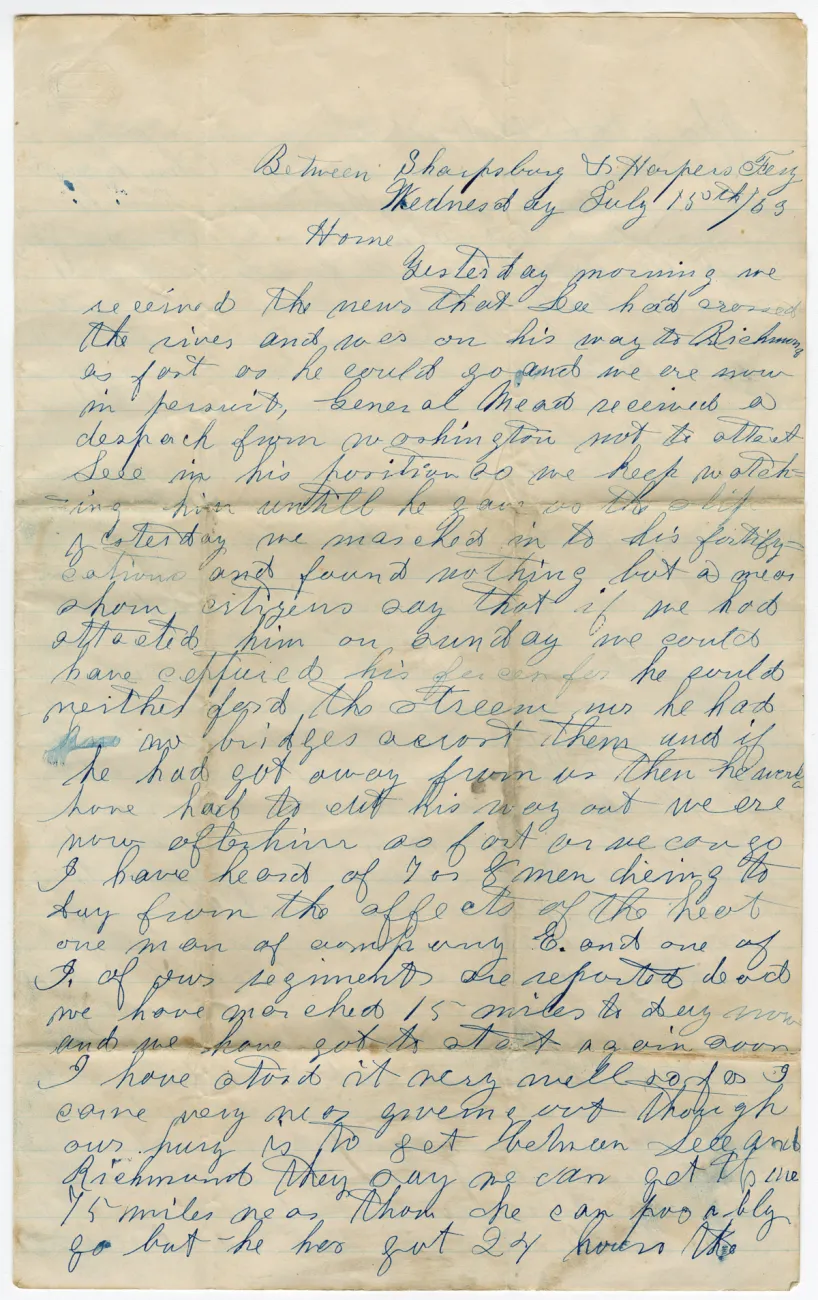 Between Sharpsburg & Harpers Fery
Wednesday July 15th/63
Home
Yesterday morning we
received the news that Lee had crossed
the river and was on his way to Richmond
as fast as he could go and we are now
in persuit, General Mead received a
despach from washington not to attact
Leee in his position so we keep watch=
=ing him untill he gave us the slip
yesterday we marched in to his fortify=
cations and found nothing but a mear
show, citizens say that if we had
attacted him on sunday we could
have captured his forces for he could
neither ford the streem nor he had
no bridges acrost them and if
he had got away from us then he would
have had to cut his way out we are
now after him as fast as we can go
I have heard of 7 or 8 men dieing to
day from the affects of the heat
one man of company E. and one of
I. of our regiments are reported dead
we have marched 15 miles to day now
and we have got to start again soon
I have stood it very well so far I
came very near giveing out though
our is to get between Leee and
Richmond they say we can get
75 miles near than he can posably
go but he has got 24 hours the